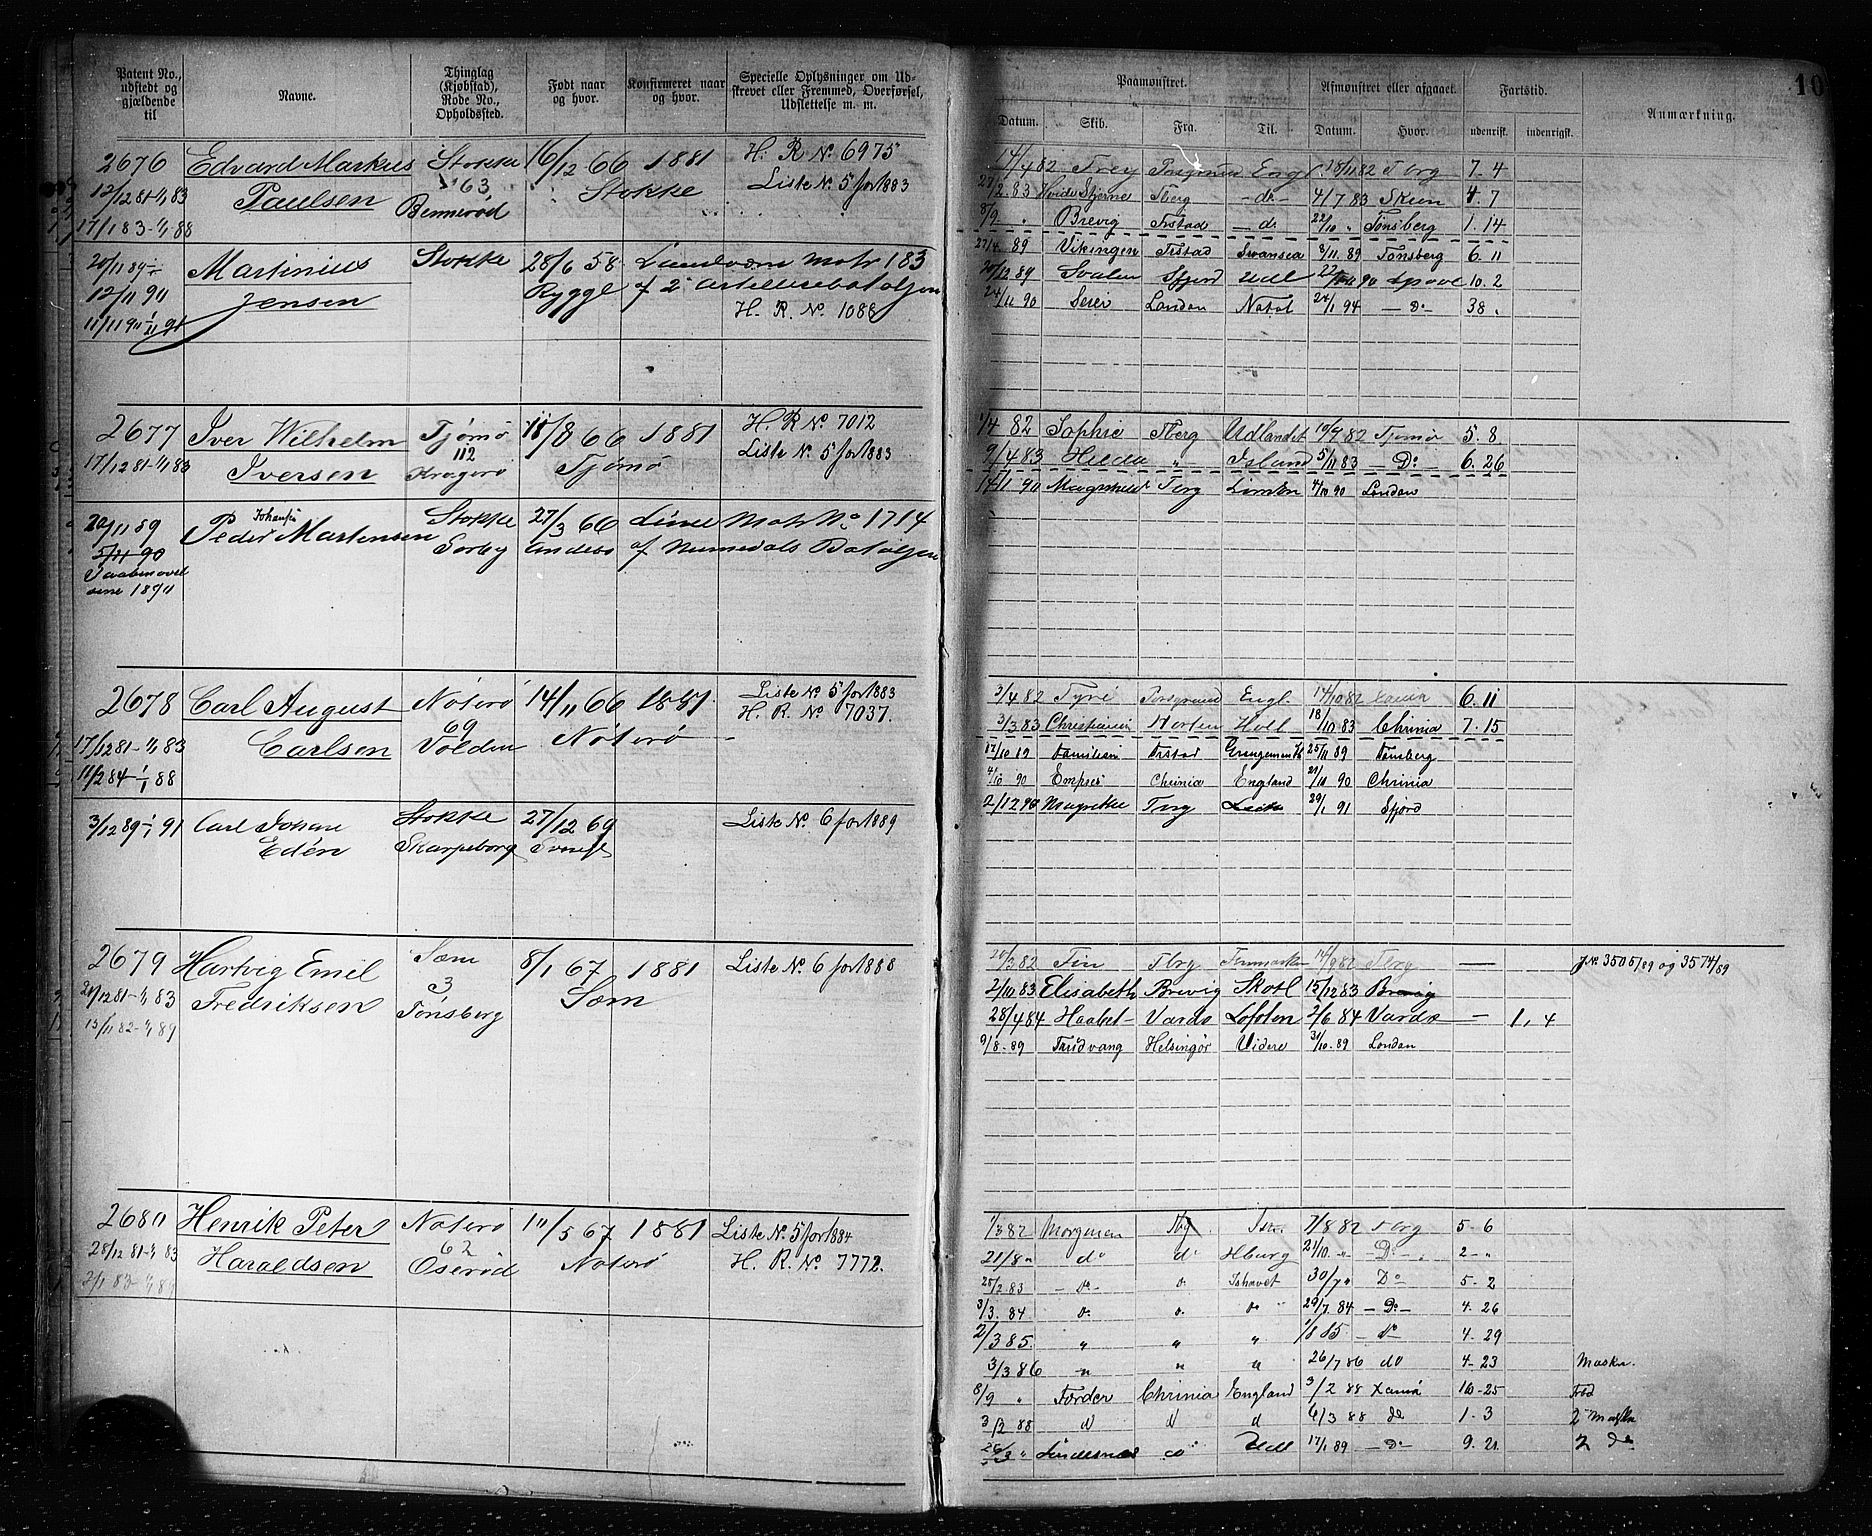 10
Patent No., udstedt og gjældende til | Navne. | Thinglag (Kjøbstad), Rode No., Opholdssted. | Født naar og hvor. | Konfirmeret naar og hvor. | Specielle Oplysninger om Udskrevet eller Fremmed, Overførsel, Udslettelse m. m.
Paamønstret. | Afmønstret eller afgaaet. | Fartstid. | Anmærkning.
Datum. | Skib. | Fra. | Til. | Datum. | Hvor. | udenrigst. | indenrigst.
2676 Edvard Markus Stokke 16/12 66 1881 H. R No 6975
12/12 81-1/1 83 Paulsen 63 Stokke Liste No 5 for 1883
17/1 83-1/1 88 Bennerød
Martinius Stokke 28/6 58 Landværn Matr 183
12/11 90 Jensen Rygge af 2 Artilleribataljon
H. R. No. 1086
2677 Iver Wilhelm Tjømø 11/8 66 1881 H. R No 7012
17/12 81-1/1 83 Iversen 112 Tjømø Liste No. 5 for 1883
Kragerø
20/11 89 Peder Johansen Martensen Stokke 27/3 66 Linie Matr No 1714
5/11 90 Sørby Andebo af Numedals Bataljon
2678 Carl August Nøterø 14/11 66 1881 Liste No 5 for 1883
69 H. R. No 7037.
17/12 81-1/1 83 Carlsen Volden Nøterø
11/2 84-1/1 88
3/12 89-1/1 91 Carl Johan Stokke 27/12 69 Liste No. 6 for 1889
Edén Skarpeborg
2679 Hartvig Emil Sæm 8/1 67 1881 Liste No. 6 for 1888
3
21/12 81-1/1 83 Fredriksen Tønsberg Sæm
15/11 82-1/1 89
2680 Henrik Peter Nøterø 10/5 67 1881 Liste No 5 for 1884
28/12 81-1/1 83 62
2/1 83-1/1 89 Haraldsen Oserød Nøterø H. R. No 7772.
14/4 82 Frey Porsgrund Engl. 15/11 82 Tbrg 7-4
27/2 83 Hvide Stjerne Tberg do 4/7 83 Skien 4. 7
8/9 " Brevig Frstad do 22/10 " Tønsberg 1. 14
27/4 89 Vikingen Frstad Swansea 3/11 89 Tønsberg 6. 11
20/12 89 Svalen Sfjord Udl 10. 2
24/11 90 Seier London Natal 24/1 94 Do 38 .
1/4 82 Sophie Tberg Udlandet 10/9 82 Tjømø 5. 8
9/4 83 Hilda " Island 5/11 83 Do 6. 26
14/1 90 London
3/4 82 Tyre Porsgrund Engl. 14/10 82 6. 11
3/3 83 Christianin Horten Holl 18/10 83 Chrinia 7. 15
17/10 89 Familien Frstad 25/11 89 Tønsberg
4/10 90 Empres Chrinia England 21/11 90 Chrinia
2/12 90 Tbrg 29/1 91 Sfjord
20/3 82 Fin Tbrg Finmarken 14/9 82 Tbrg — J. No. 3505/89 og 3574/89
2/10 83 Elisabeth Brevig Skotl 15/12 83 Brevig
28/4 84 Haabet Vardø Lofoten 2/6 84 Vardø — 1, 4
9/8 89 Fridvang Helsingør Videre 31/10 89 London
1/3 82 Morgenen Tbg Ish. 7/8 82 Tbrg 5-6
21/8 " do do Hburg 21/10 " Do 2- "
25/2 83 do do Ishavet 30/7 " Do 5-2
3/3 84 do do " 29/7 84 Do 4. 26
2/3 85 " " " 1/8 85 do 4. 29
3/3 86 " " " 26/7 86 do 4-23
8/9 " Færder Chrinia England 3/2 88 Xania 16-25
3/2 88 d d d 6/3 88 do 1. 3
26/3 " Lindesnæs do Udl 17/1 89 Do 9. 21 2 do